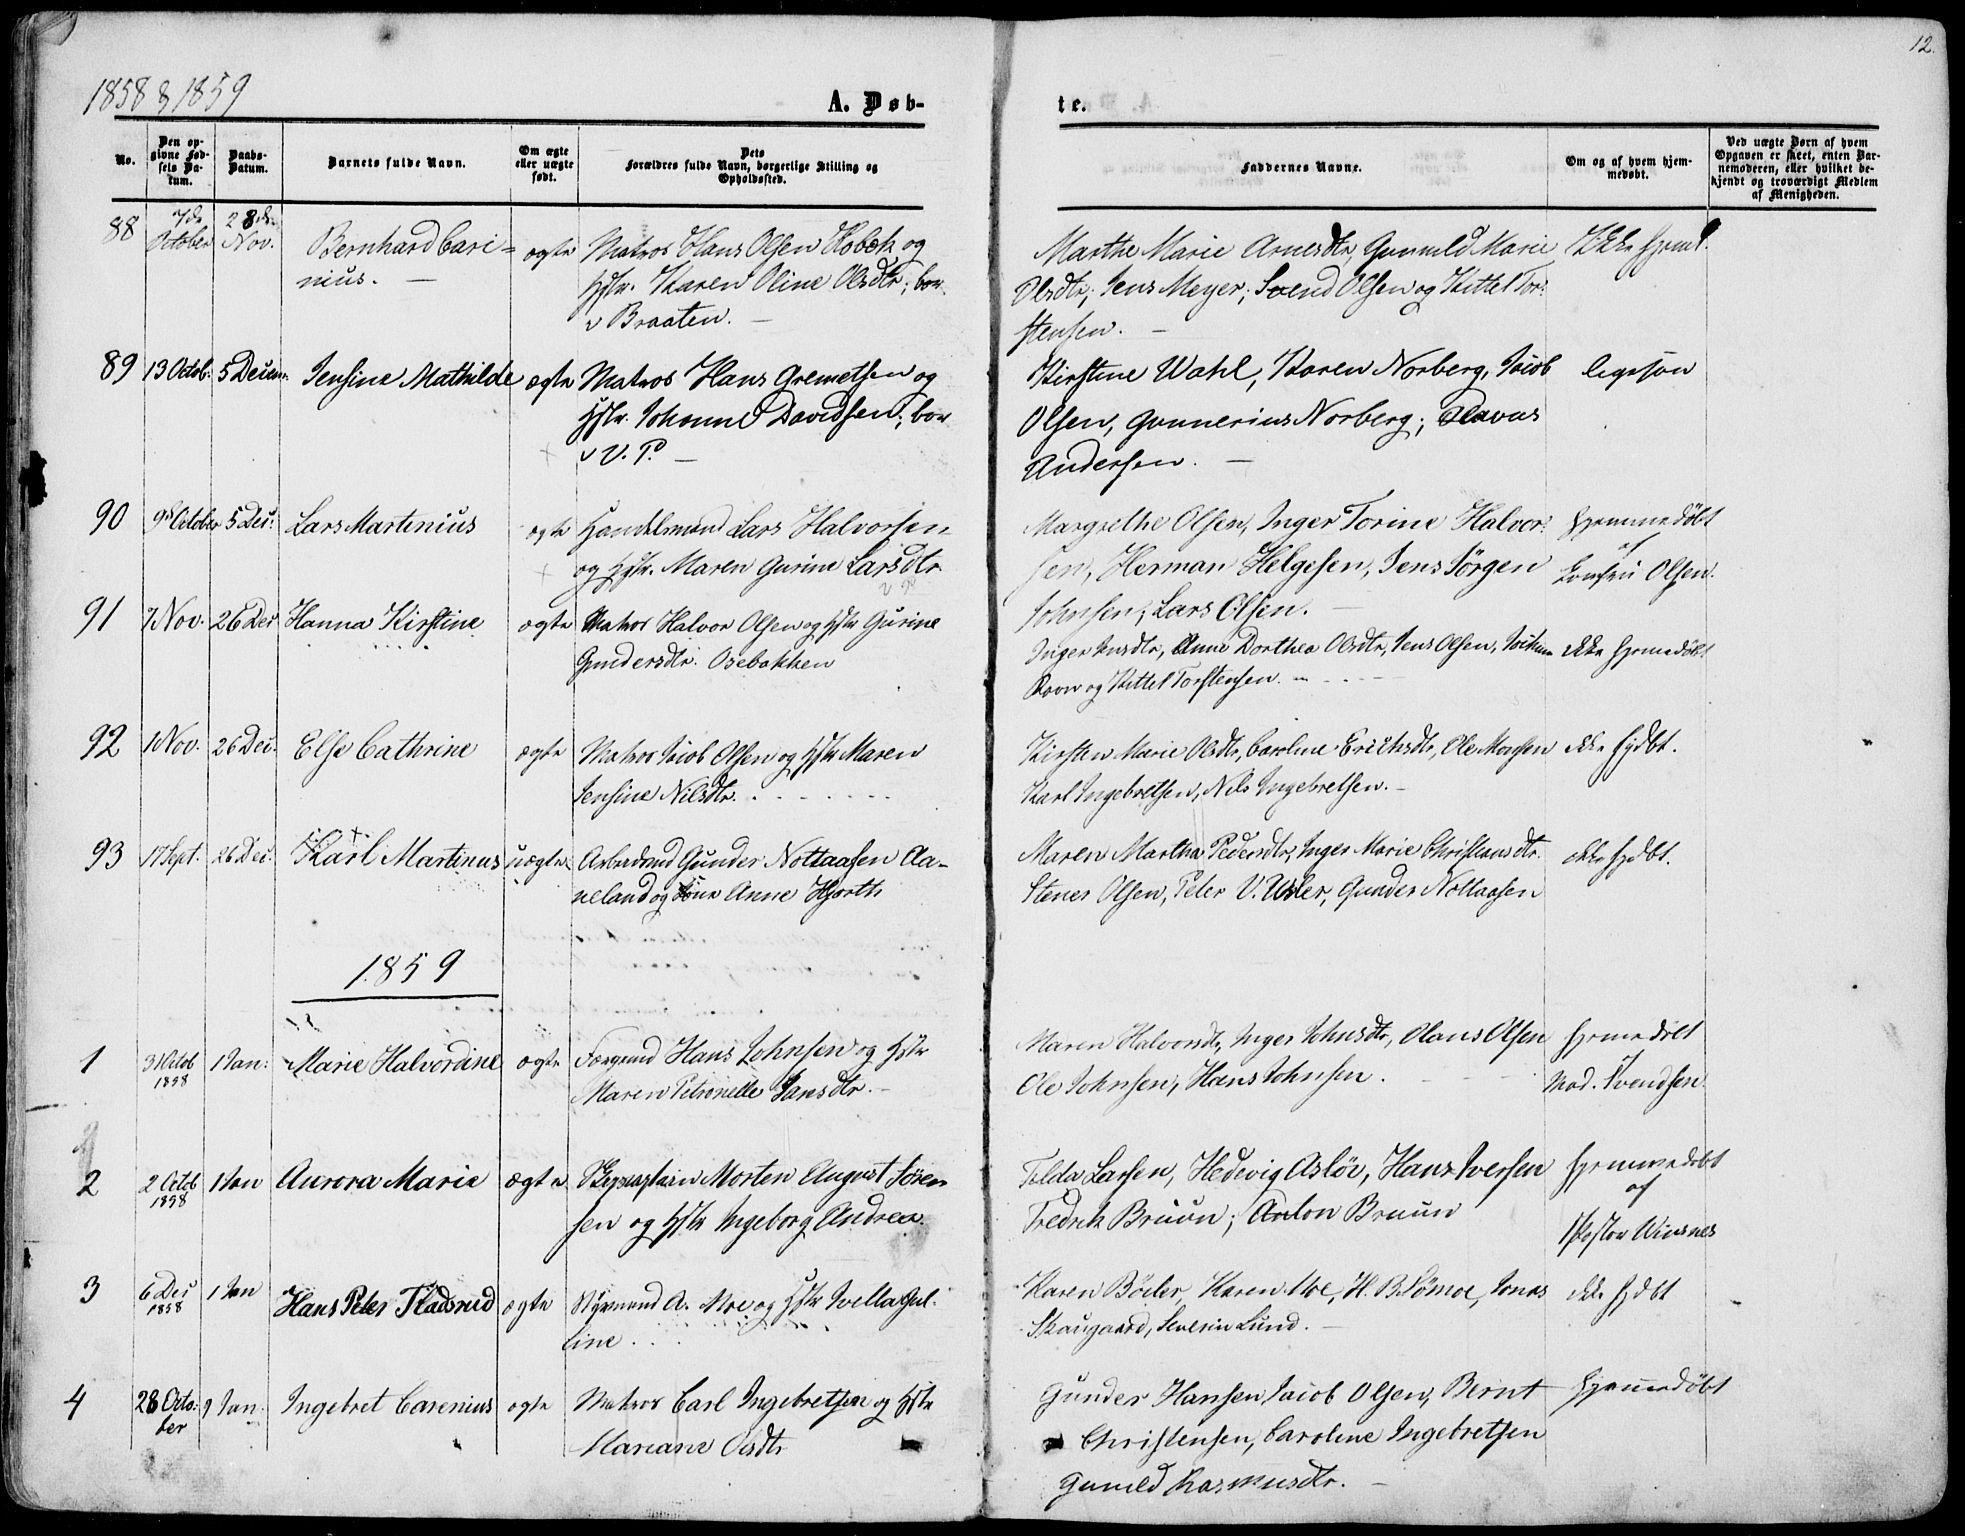 12.
1858 & 1859
A. Døb-
te.
No.
Den op-
givne Fød-
sels Da-
tum.
Daabs-
Datum.
Barnets fulde Navn.
Om ægte
eller uægte
født.
Dets
Forældres fulde Navn, borgerlige Stilling og
Opholdssted.
Faddernes Navne.
Om og af hvem hjem-
medøbt.
Ved uægte Børn af hvem
Opgaven er skeet, enten Bar-
nemoderen, eller hvilket be-
kjendt og troværdigt Medlem
af Menigheden.
88 7de October 28de Nov. Bernhard Cari-
nius. —
ægte Matros Hans Olsen Hobek og
Hstr. Karen Oline Olsdtr; boe.
v Braaten. —
Marthe Marie Arnesdtr, Gunnild Marie
Olsdtr; Jens Meyer; Svend Olsen og Kittel Tor-
stensen. —
Ikke hjemd.
89 13 Octob. 5 Decem. Jensine Mathilde ægte Matros Hans Gremetsen og
Hstr. Johanne Davidsen; boe
v V. P. —
Kirstine Wahl, Karen Norberg, Jacob
Olsen, Gunnerius Norberg; Olavus
Andersen. —
ligesaa
90 9de October 5 Dec. Lars Martinius ægte Handelsmand Lars Halvorsen
og Hstr. Maren Gurine Larsdtr.
V P.
Margrethe Olsen, Inger Torine Halvor-
sen, Herman Helgesen, Jens Jørgen
Johnsen, Lars Olsen. —
hjemmedøbt
af
Olsen.
91 7 Nov. 26 Dec Hanna Kirstine ægte Matros Halvor Olsen og Hstr Gurine
Gundersdtr. Osebakken
Inger Dorthea Olsdtr, Jens Olsen,
og Kittel Torstensen. —
ikke hjemmedøbt
92 1 Nov. 26 Dec. Else Cathrine ægte Matros Jacob Olsen og Hstr Maren
Jensine Nilsdtr.
Kirsten Marie Olsdtr, Caroline Erichsdtr, Ole Monsen
Karl Ingebretsen, Nils Ingebretsen. —
ikke hjdbt.
93 17 Sept. 26 Dec. Karl Martinus uægte Arbmand Gunder Nottaasen Aa-
neland og Anne Hjorth
Maren Martha Pedersdtr, Inger Marie Christansdtr.
Stener Olsen, Peter V. Usler, Gunder Nottaasen
ikke hjdbt.
1859
1 31 Octob 1858 1 Jan. Marie Halvordine ægte Færgemd Hans Johnsen og Hstr
Maren Petronelle Jansdtr. —
Maren Halvorsdtr, Inger Johnsdtr, Olaus Olsen
Ole Johnsen, Hans Johnsen.
hjemmedøbt
af
Mad. Svendsen
2 2 Octob 1858 1 Jan Aurora Marie ægte Skipscaptain Morten August Søren-
sen og Hstr Ingeborg Andrea.
Tolda Larsen, Hedevig Asløv, Hans Iversen
Fredrik Bruun; Anton Bruun
hjemmedøbt
af
Pastor Wiesnes
3 6 Dec 1858 1 Jan Hans Peter Fladsrud ægte Styrmand A. Moe og Hstr Gul-
line.
Karen Böeler, Karen Moe, H. B. Lömoe, Jonas
Skaugaard, Severin Lund. —
ikke hjdbt
4 28 Octo-
ber 9 Jan. Ingebret Carenius ægte Matros Carl Ingebretsen og Hstr
Mariane Olsdtr
Gunder Hansen Jacob Olsen, Bernt
Christensen, Caroline Ingebretsen
Gunild Rasmusdtr. —
hjemmedøbt